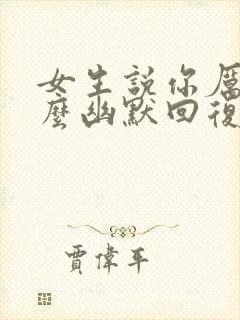 女生說你厲
麼幽默回復
賈偉平